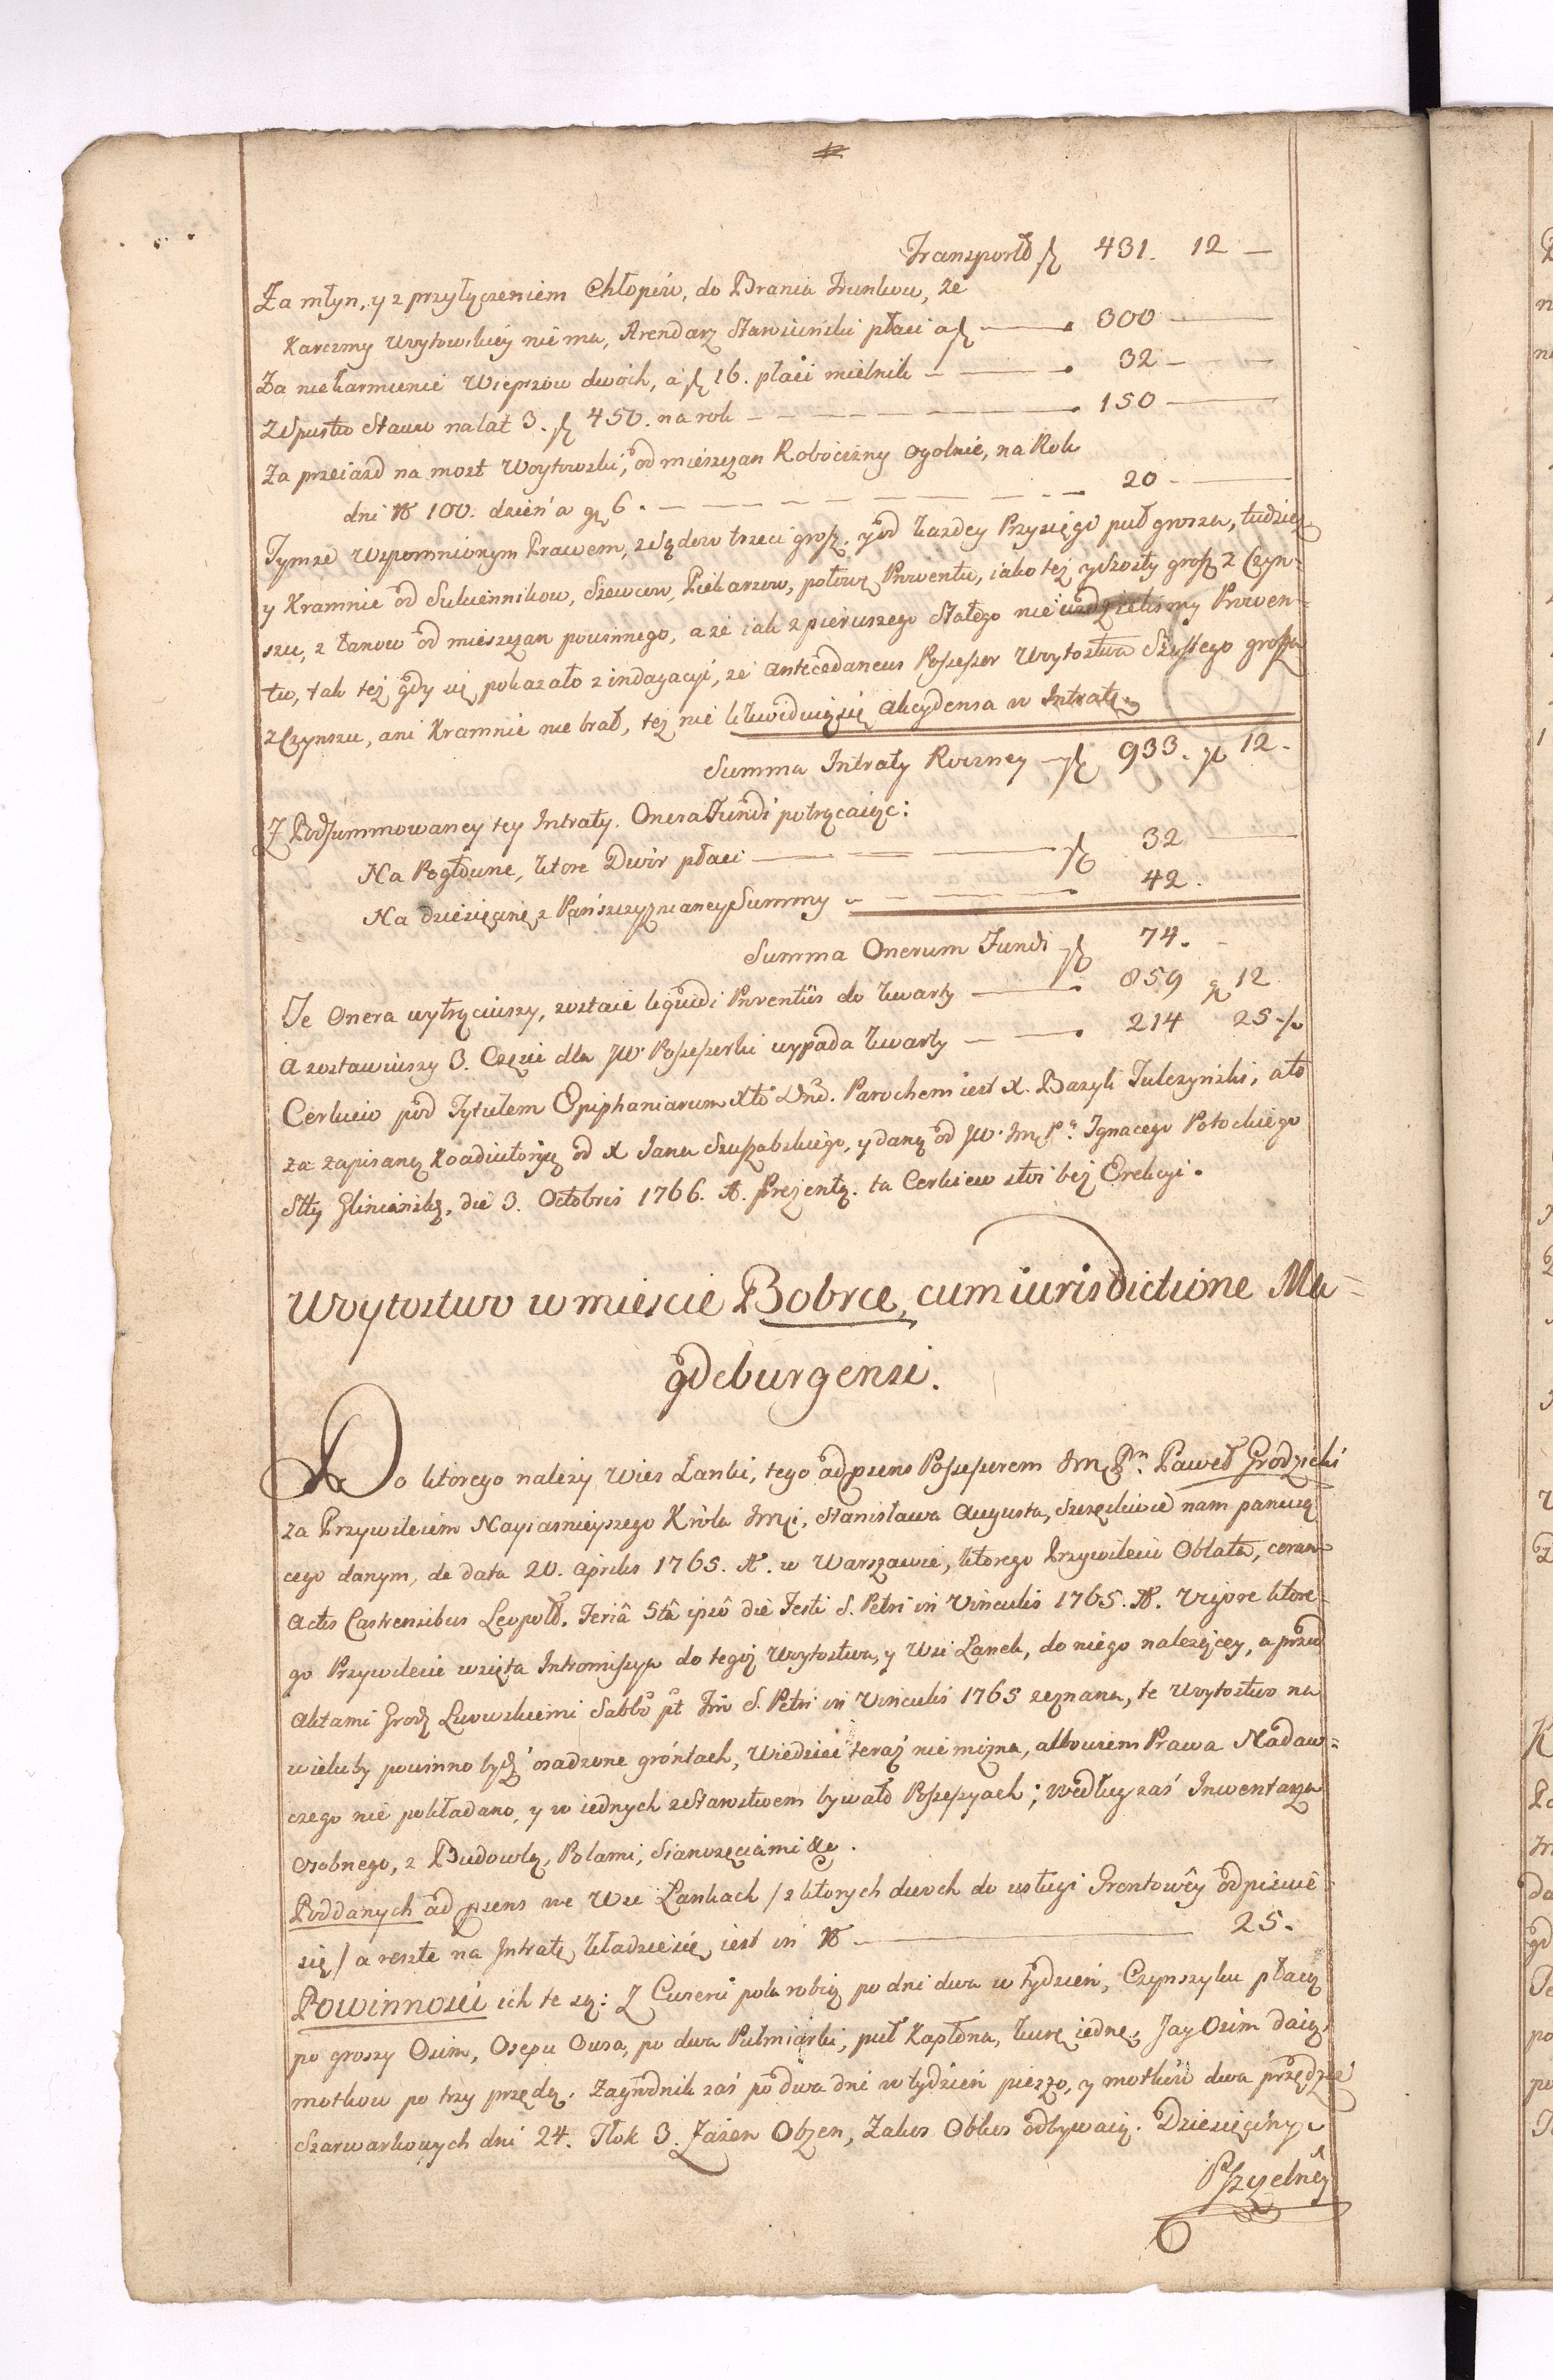 Transportd fl 431. 12 —
Za młyn, y z przyłączeniem Chłopów, do Brania Trunkow, że
Karczmy Woytowskiey niema, Arendarz Stawiński płaci a fl — 300 —
Za niekarmienie Wieprzow dwoch, a fl 16. płaci mielnik — — 32 —
Z Spustu Stawu na lat 3. fl 450. na rok — — — 150 —
Za przeiazd na most Woytowski, od mieszczan Robocizny ogolnie, na Rok
dni № 100. dzień a gr 6. — — — 20 —
Tymże wspomnionym Prawem, z Sądow trzeci grosz. y od każdey Przysięgi puł grosza, tudzież
y Kramnie od Sukiennikow, Szewcow, Piekarzow, połowę Prowentu, iako też y szosty grosz z Czyn-
szu, z łanow od mieszczan powinnego, a że iak z pierwszego Stałego nie widzieliśmy Prowen-
tu, tak też gdy się pokazało z indagacyi, że antecedaneus Possessor Woytostwa Szostego grosza
z Czynszu, ani Kramnie nie brał, też nie likwiduią się akcydensa w Intratę.
Summa Intraty Roczney — fl 933. gr 12.
Z Podsummowaney tey Intraty. Onera Fundi potrącaiąc:
Na Pogłowne, ktore Dwór płaci — — fl 32 —
Na dziesięcinę z Pańszczyznianey Summy — — 42.
Summa Onerum Fundi fl 74. -
Te Onera wytrąciwszy, zostaie liquidi Proventûs do kwarty — 859 gr 12
A zostawiwszy 3. Części dla JW. Possessorki wypada kwarty — — 214 25 ½
Cerkwio pod Tytułem Epiphaniarum Xti Dnd. Parochem iest X. Bazyli Tulczyński, a to
za zapisaną koadiutoryą od X Jana Szuszabskiego, y daną od JW. Jmę Pa. Ignacego Potockiego
Stty Glinianskę, die 3. Octobris 1766. A. Prezentę. ta Cerkiew stoi bez Erekcyi.
Woytostwo w miescie Bobrce, cum iurisdictione Ma=
gdeburgensi.
Do ktorego należy Wies Łanki, tego ad praens Possessorem Jmę Pn. Paweł Grodzicki
za Przywileiem Nayiasnieyszego Króla Jmci, Stanisława Augusta, Szczęśliwie nam panuią
cego danym, de data 20. Aprilis 1765. A. w Warszawie, ktorego Przywileiu Oblata, coram
Actis Castrensibus Leopold. Feriâ 5tâ ipsô die Festi S. Petri in Vinculis 1765. A. Vigore ktore-
go Przywileiu wzięta Intromissya do tegoż Woytostwa, y Wsi Łanek, do niego należącey, a przed
Aktami Grodz Lwowskiemi Sabbo pt Fm S. Petri in Vinculis 1765 zeznana, te Woytostwo na
wieluby powinno bydź osadzone gróntach, Wiedzieć teraz nie można, albowiem Prawa Nadaw=
czego nie pokładano, y w iednych z Starostwem bywało Possessyach; według zaś Inwentarza
Osobnego, z Budowlą, Polami, Sianożęciami &c.
Poddanych ad praens we Wsi Łankach / z ktorych dwoch do usługi Grontowêy odpisuie
się / a reszte na Intratę kładzie się, iest in № — 25.
Powinności ich te są: Z Cwierci pola robią po dni dwa w tydzień, Czynszyku płacą
po groszy Osim, Osepu Owsa, po dwa Pułmiarki, puł Kapłona, kurę iednę, Jay Osim daią,
motkow po trzy przędą. Zagrodnik zaś po dwa dni w tydzień pieszo, y motków dwa przędzie
Szarwarkowych dni 24. Tłok 3. Zażen Obżen, Zakos Obkos odbywaią. Dziesięciny
Pszczelnêy